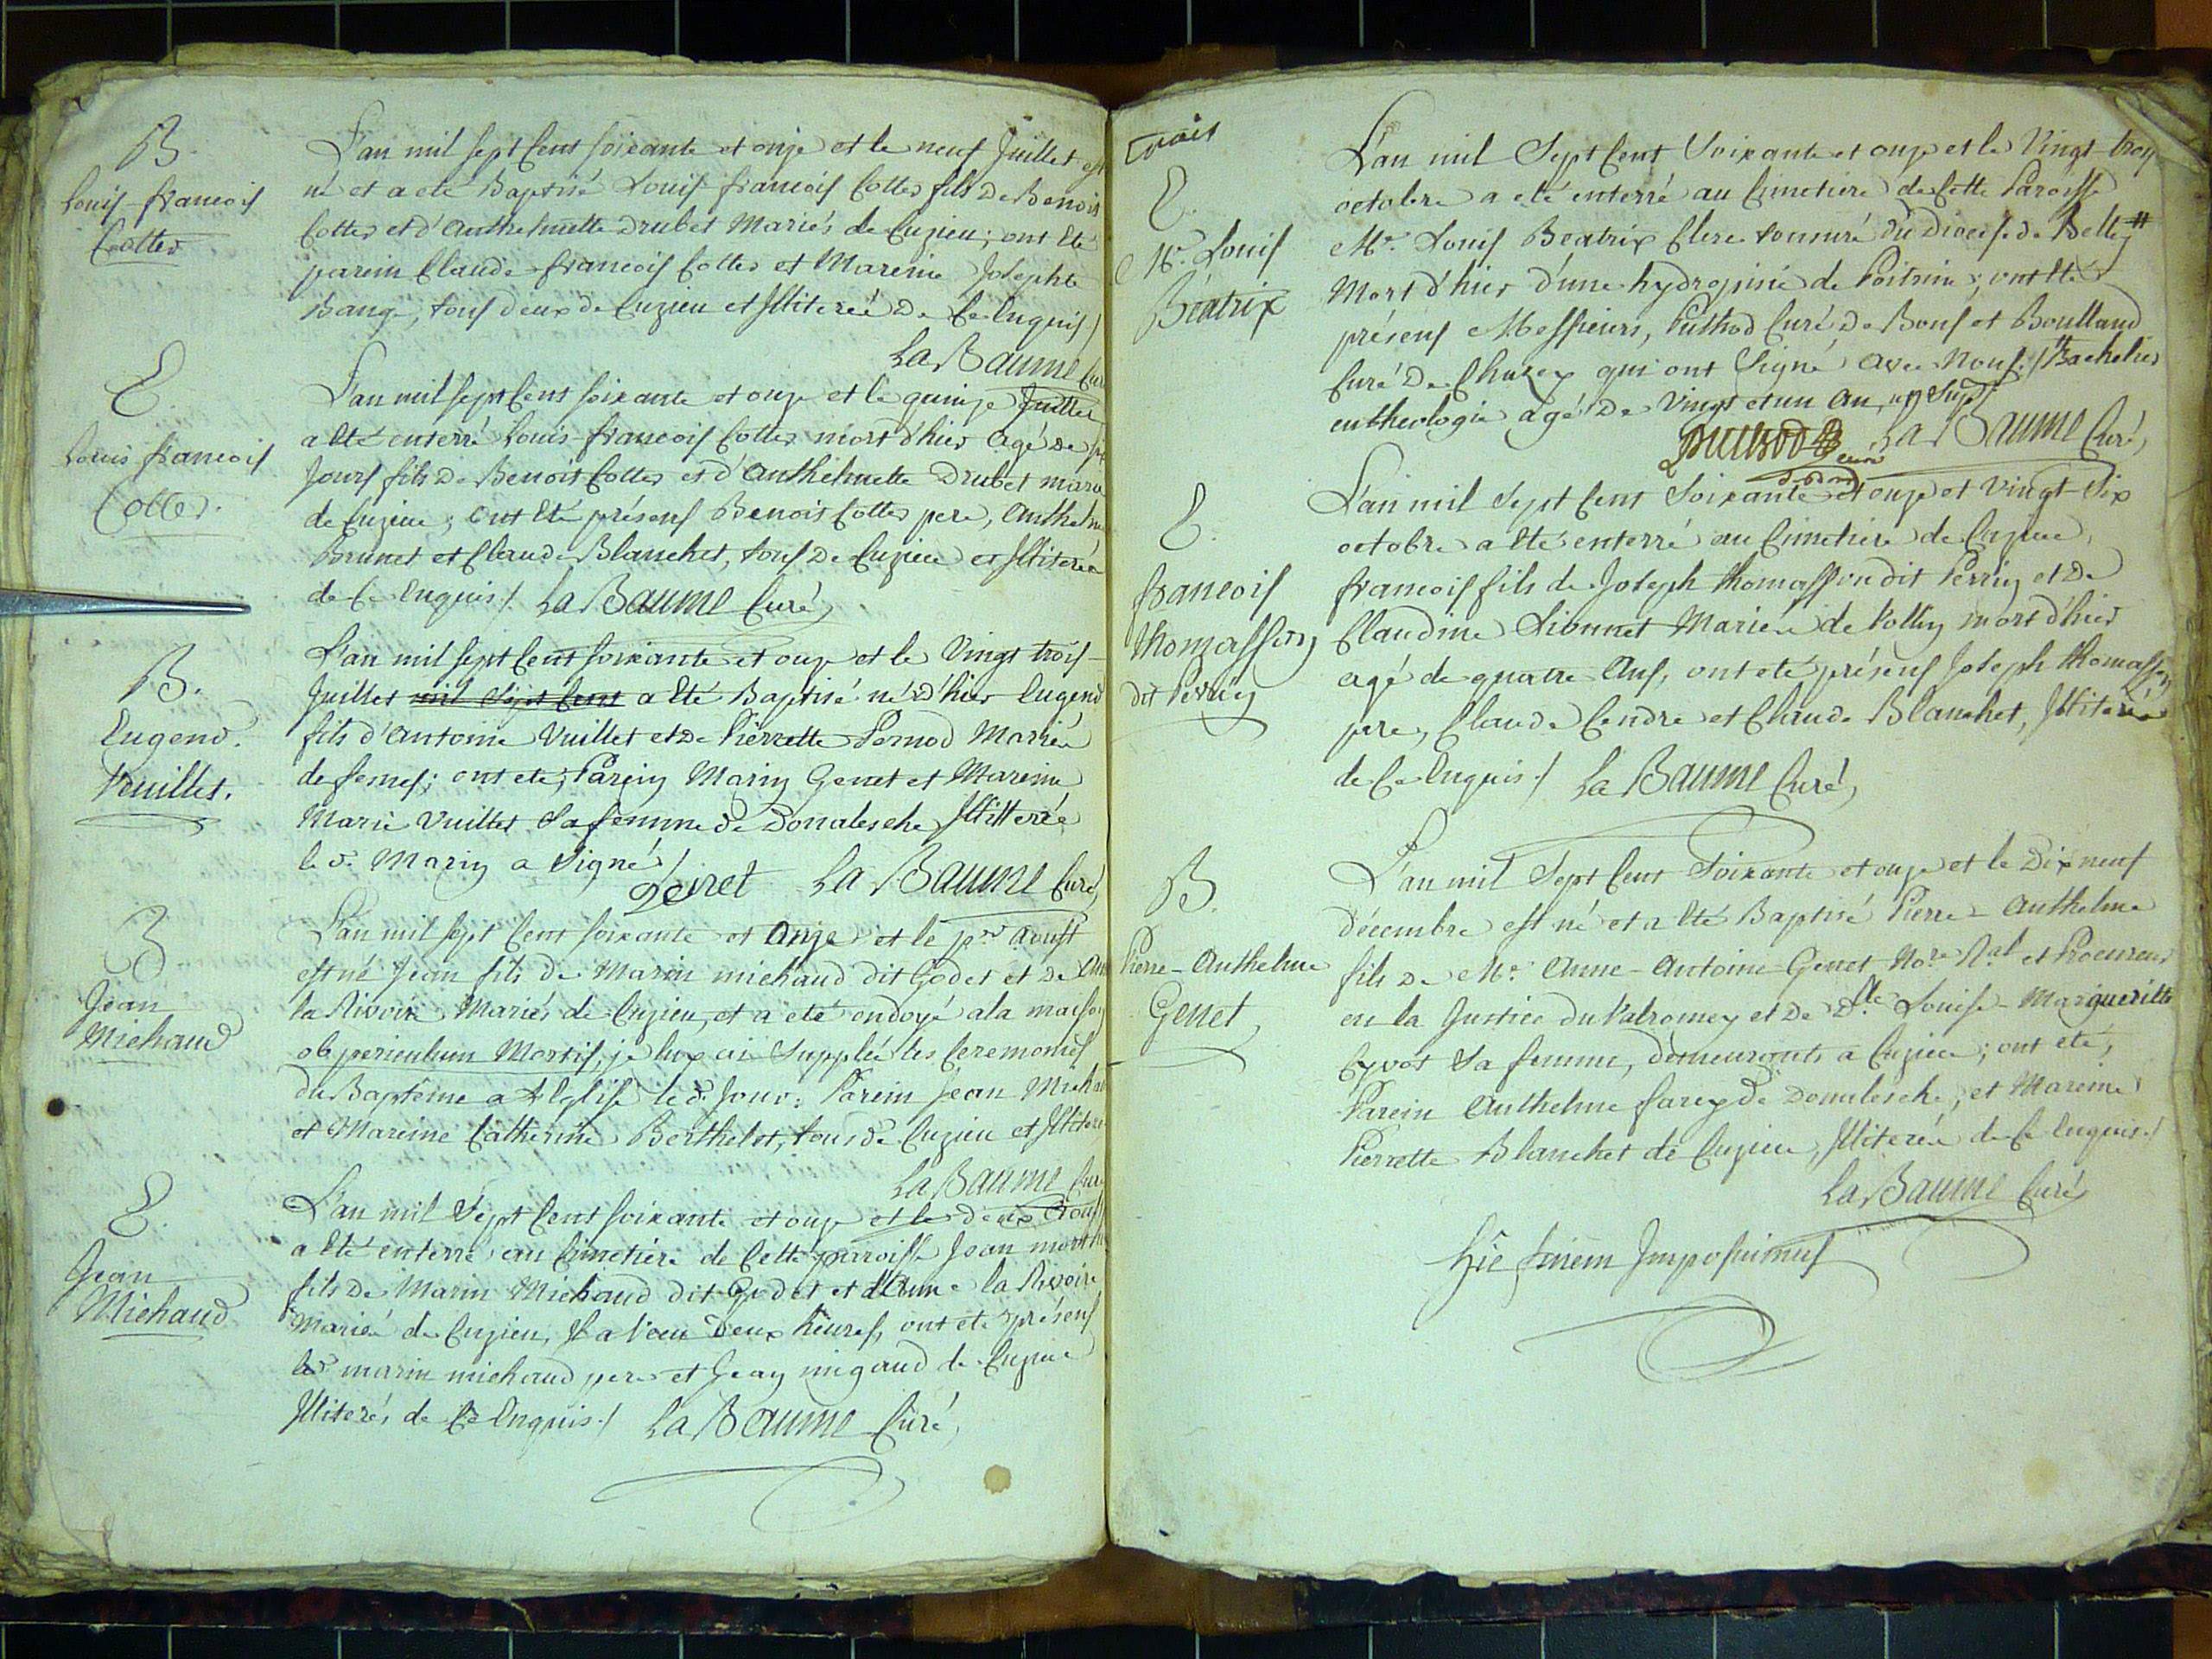 B.
Louis-francois
Cottes
L'an mil sept Cent soixante et onze et le neuf Juillet est
né et a eté Baptisé Louis-francois Cottes fils De Benoit
Cottes et d'Anthelmette Drubet Mariés de Cuzieu; ont été
parein Claude-francois Cottes et Mareine Josephte
Bange, tous deux de Cuzieu et Illiterée De Ce Enquis./
La Baume Curé
E.
Louis francois
Cottes.
L'an mil sept Cent soixante et onze et le quinze Juillet
a Eté enterré Louis-francois Cottes mort d'hier agé de six
Jours fils De Benoit Cottes et d'Anthelmette Drubet marié
de Cuzieu; ont Eté présens Benoit Cottes pere, Anthelme
Brunet et Claude Blanchet, tous De Cuzieu et Illiterée
de Ce Enquis./. La Baume Curé,
B.
Eugend.
Vuillet.
L'an mil sept Cent soixante et onze et le Vingt trois
Juillet mil Sept Cent a Eté Baptisé né D'hier Eugend
fils d'Antoine Vuillet et De Pierrette Pernod Mariée
de ; ont eté, Parein Marin Genet et Mareine
Marie Vuillet Sa femme de Donalesche Illitterée
le d. Marin a Signé./
Genet La Baume Curé,
B
Jean
Michaud
L'an mil sept Cent soixante et Onze et le pr. Aoust
est né Jean fils de Marin michaud dit Godet et De Anne
la Rivoire Mariés de Cuzieu, et a eté ondoyé ala maison
ob periculum Mortis, je luy ai Supplée les Ceremonies
du Baptême a l'Eglise le d. Jour: Parein Jean Michaud
et Mareine Catherine Berthelet, tous de Cuzieu et Illiteré
La Baume Curé
E.
Jean
Michaud
L'an mil Sept Cent soixante et onze et le deux Aoust
a Eté enterré au Cimetière de Cette paroisse Jean mort hier
fils De Marin Michaud dit Godet et d'Anne la Rivoire
Mariée de Cuzieu, Il a Vecu Deux heures, ont eté présens
led marin michaud pere et Jean migaud de Cuzieu
Illiterés de Ce Enquis./ La Baume Curé,
E.
Mr. Louis
Béatrix
L'an mil Sept Cent Soixante et onze et le Vingt-trois
octobre a eté enterré au Cimetiere de Cette Paroisse
Mr. Louis Beatrix Clerc tonsuré du Diocese de Belley #
Mort d'hier d'une hydropisie de Poitrine; ont Eté
présens Messieurs, Puthod Curé De Bons et Boulland
Curé De Chazey qui ont Signé avec Nous./ # Bachelier
en theologie agé De Vingt et un An,
Puthod Curé de Bons La Baume Curé,
E.
francois
thomasson
dit Perrin
L'an mil Sept Cent Soixante et onze et Vingt-Six
octobre a Eté enterré au Cimetiere de Cuzieu,
francois fils de Joseph thomasson dit Perrin et De
Claudine Lionnet Mariée de Vollin mort d'hier
agé de quatre Ans, ont eté présens Joseph thomasson
pere, Claude Cendre et Claude Blanchet, Illiterés
de Ce Enquis./ La Baume Curé,
B.
Pierre-Anthelme
Genet,
L'an mil Sept Cent Soixante et onze et le Dix neuf
décembre est né et a Eté Baptisé Pierre-Anthelme
fils De Mr. Anne-Antoine Genet Nore. Ral et Procureur
en la Justice du Valromey et De Dlle. Louise-Marguerite
Cyvot Sa femme, demeurants a Cuzieu; ont eté,
Parein Anthelme de Donalesche, et Mareine
Pierrette Blanchet de Cuzieu, Illiterée de Ce Enquis./
La Baume Curé
hîc finem Imposuimus